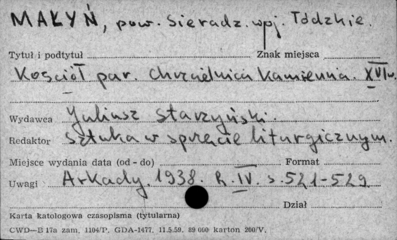 MAŁYŃ, pow. Sieradz. wpj. Łódzkie.
Tytuł i podtytuł Znak miejsca
Kościół par. Chrzcielnica kamienna. XVI w.
Wydawca Juliusz Starzyński.
Redaktor Sztuka w sprzęcie liturgicznym.
Miejsce wydania data (od - do) Format
Uwagi Arkady. 1938. R. IV. s. 521-529
Dział
Karta katologowa czasopisma (tytularna)
CWD—B 17a zam. 1104/P. GDA-1477. 11.5.59. 89 060 karton 200/V.